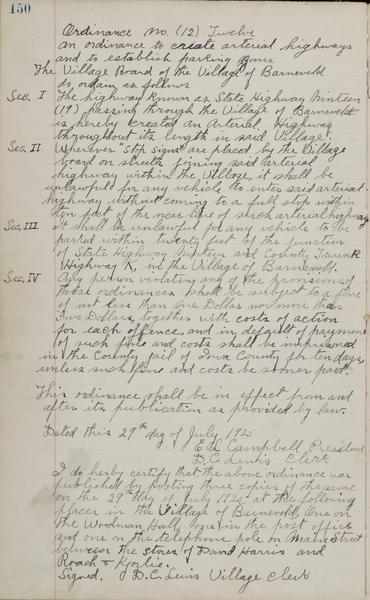 150
Ordinance No. (12) Twelve
An ordinance to create arterial highways
and to establish parking zones
The Village Board of the Village of Barneveld
do ordain as follows
Sec. I The highway known as State Highway Nineteen
(19) passing through the Village of Barneveld
is hereby created an Arterial Highway
throughout its length in said Village.
Sec. II Wherever "Stop Signs" are placed by the Village
board on streets joining said arterial
highway within the Village, it shall be
unlawful for any vehicle to enter said arterial
highway without coming to a full stop within
ten feet of the near line of such arterial highway
Sec. III It shall be unlawful for any vehicle to be
parked within twenty feet of the junction
of State Highway Nineteen and County Trunk
Highway K, in the Village of Barneveld.
Sec. IV Any person violating any of the provisions of
these ordinances shall be subject to a fine
of not less than One Dollar nor more than
Five Dollars, together with costs of action
for each offence, and in default of payment
of such fine and costs shall be imprisoned
in the County jail of Iowa County for ten days,
unless such fine and costs be sooner paid.
This ordinance shall be in effect from and
after its publication as provided by law.
Dated this 29th day of July 1925
Campbell President
D. C. Lewis Clerk
I do herby certify that the above ordinance was
published by posting three copies of the same
on the 29th day of July 1925 at the following
places in the Village of Barneveld, One on
the Woodman Hall, one in the post office
and one on the telephone pole on Main Street
between the stores of David Harris and
Roach &
Signed. D. C. Lewis Village Clerk